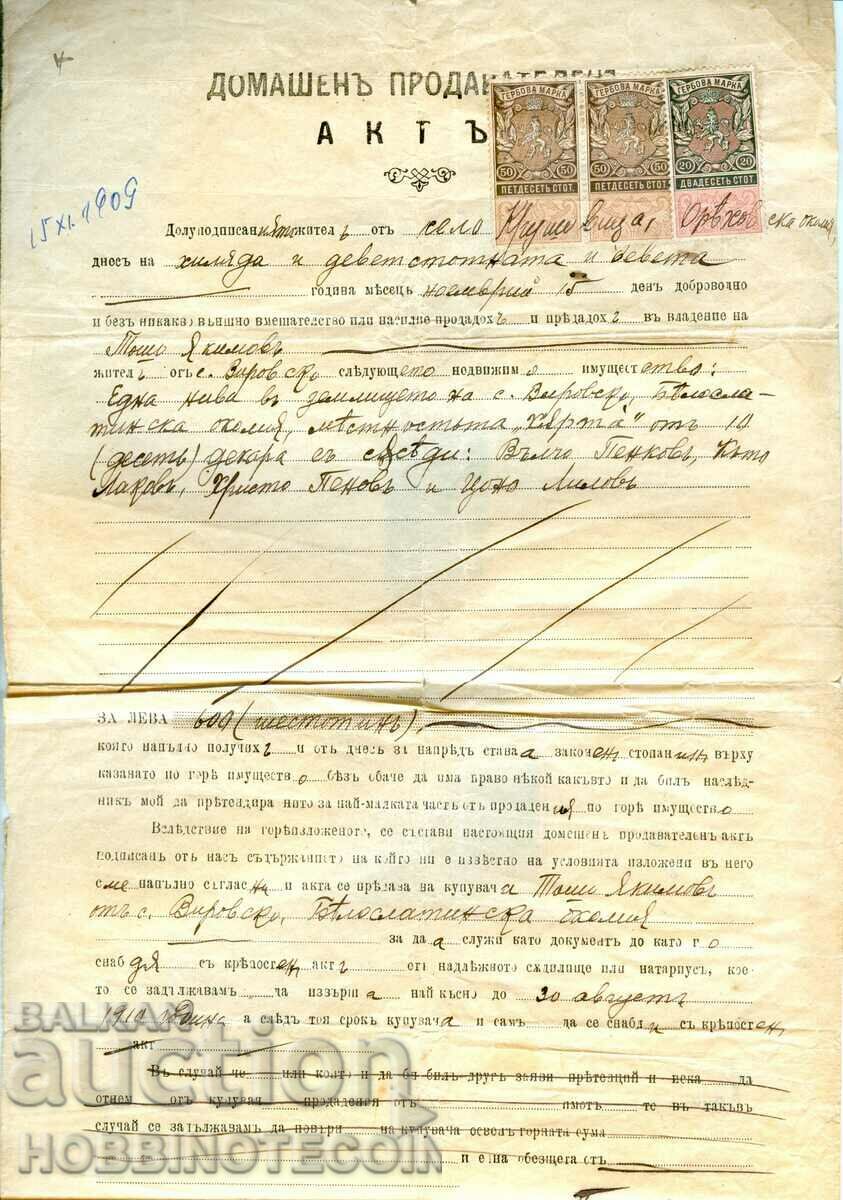 ДОМАШЕНЪ ПРОДАВАТЕЛЕНЪ
АКТЪ
ГЕРБОВА МАРКА ГЕРБОВА МАРКА ГЕРБОВА МАРКА
50 50 50 50 20 20
ПЕТДЕСЕТЬ СТОТ. ПЕТДЕСЕТЬ СТОТ. ДВАДЕСЕТЬ СТОТ.
15 XI. 1909
Долуподписаниятъ жител ъ отъ село Крушовица, Орѣховска околия,
днесъ на хиляда и деветстотната и девета
година мѣсецъ ноемврий 15 день доброволно
и безъ никакво външно вмешателство или насилие продадохъ и прѣдадохъ въ владение на
Тошо Якимовъ
жител ъ отъ с. Вировско следующето недвижимо имуществво:
Една нива въ землището на с. Вировско, Бѣлосла-
тинска околия, мѣстностьта „Кърта" отъ 10
(десеть) декара съ съсѣди: Вълчо Пенковъ, Къто
Лаковъ, Христо Пеновъ и Цоно Лиловъ
ЗА ЛЕВА 600 (шестотинъ),
която напълно получихъ и отъ днесъ за напрѣдъ става а законен стопанин върху
казаното по горѣ имущество безъ обаче да има право нѣкой какъвто и да билъ наслѣд-
никъ мой да прѣтендира нито за най-малката часть отъ продадения по горѣ имущество
Вследствие на горѣизложеното, се състави настоящия домошенъ продавателенъ актъ
подписанъ отъ насъ съдържанието на който ни е известно на условията изложени въ него
сме напълно съгласни и акта се прѣдава на купувача Тошо Якимовъ
отъ с. Вировско, Бѣлослатинска околия
за да а служи като документъ до като го
снабдя съ крѣпостен актъ отъ надлѣжното съдилище или натариусъ, кое-
то се задължавамъ да извърша най късно до 30 августъ
1910 година а слѣдъ тоя срокъ купувача и самъ да се снабди съ крѣпостен
актъ
Въ случай че или който и да би билъ другъ заяви прѣтенций и иска да
отнеме отъ купувач продадения отъ имотъ то въ такъвъ
случай се задължавамъ да повърн на купувача освенъ горната сума
и една обезщета отъ
BALKAN
auction
HOBBINOTECOIN